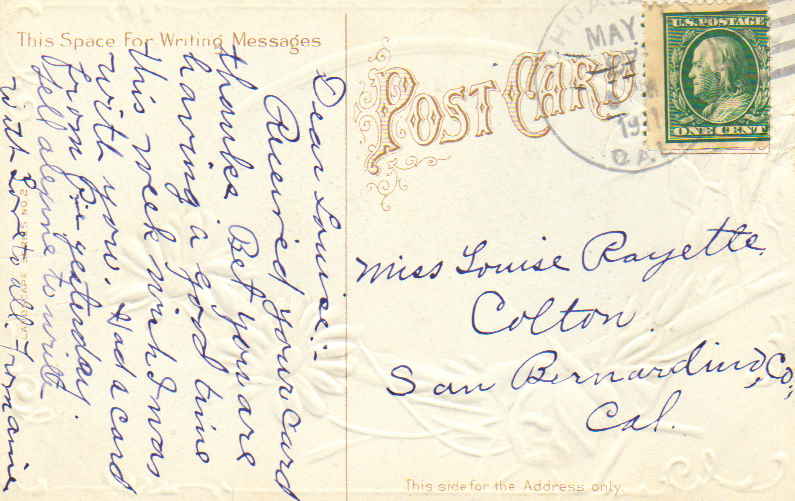 This Space For Writing Messages
Dear Louise:-
Received your card
thanks. Bet you are
having a good time
this week wish I was
with you. Had a card
from yesterday.
tell to write
with love to all. Fromaine
POST CARD
MAY
191
CAL
U.S. POSTAGE
ONE CENT
Miss Louise Rayette.
Colton.
San Bernardino, Co;
Cal.
This side for the Address only.